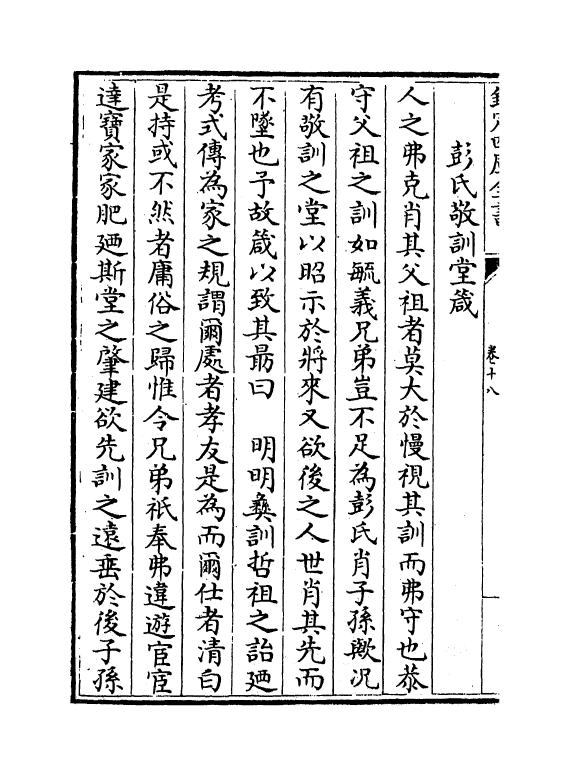 欽定四庫全書
卷十八
彭氏敬訓堂箴
人之弗克肖其父祖者莫大於慢視其訓而弗守也恭
守父祖之訓如毓義兄弟豈不足為彭氏肖子孫歟况
有敬訓之堂以昭示於將來又欲後之人世肖其先而
不墜也予故箴以致其朂曰　明明彝訓哲祖之詒廼
考式傳為家之規謂爾處者孝友是為而爾仕者清白
是持或不然者庸俗之歸惟令兄弟祇奉弗違遊宦宦
達寶家家肥廼斯堂之肇建欲先訓之遠垂於後子孫